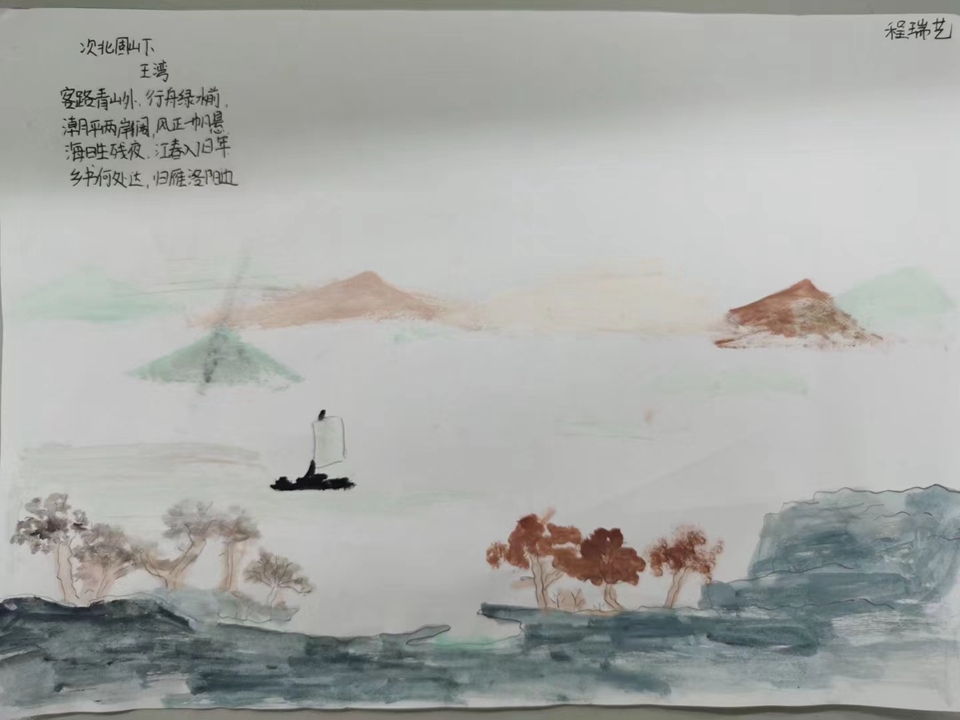 次北固山下
王湾
客路青山外,行舟绿水前,
潮平两岸阔,风正一帆悬
海日生残夜,江春入旧年
乡书何处达,归雁洛阳边
程瑞艺